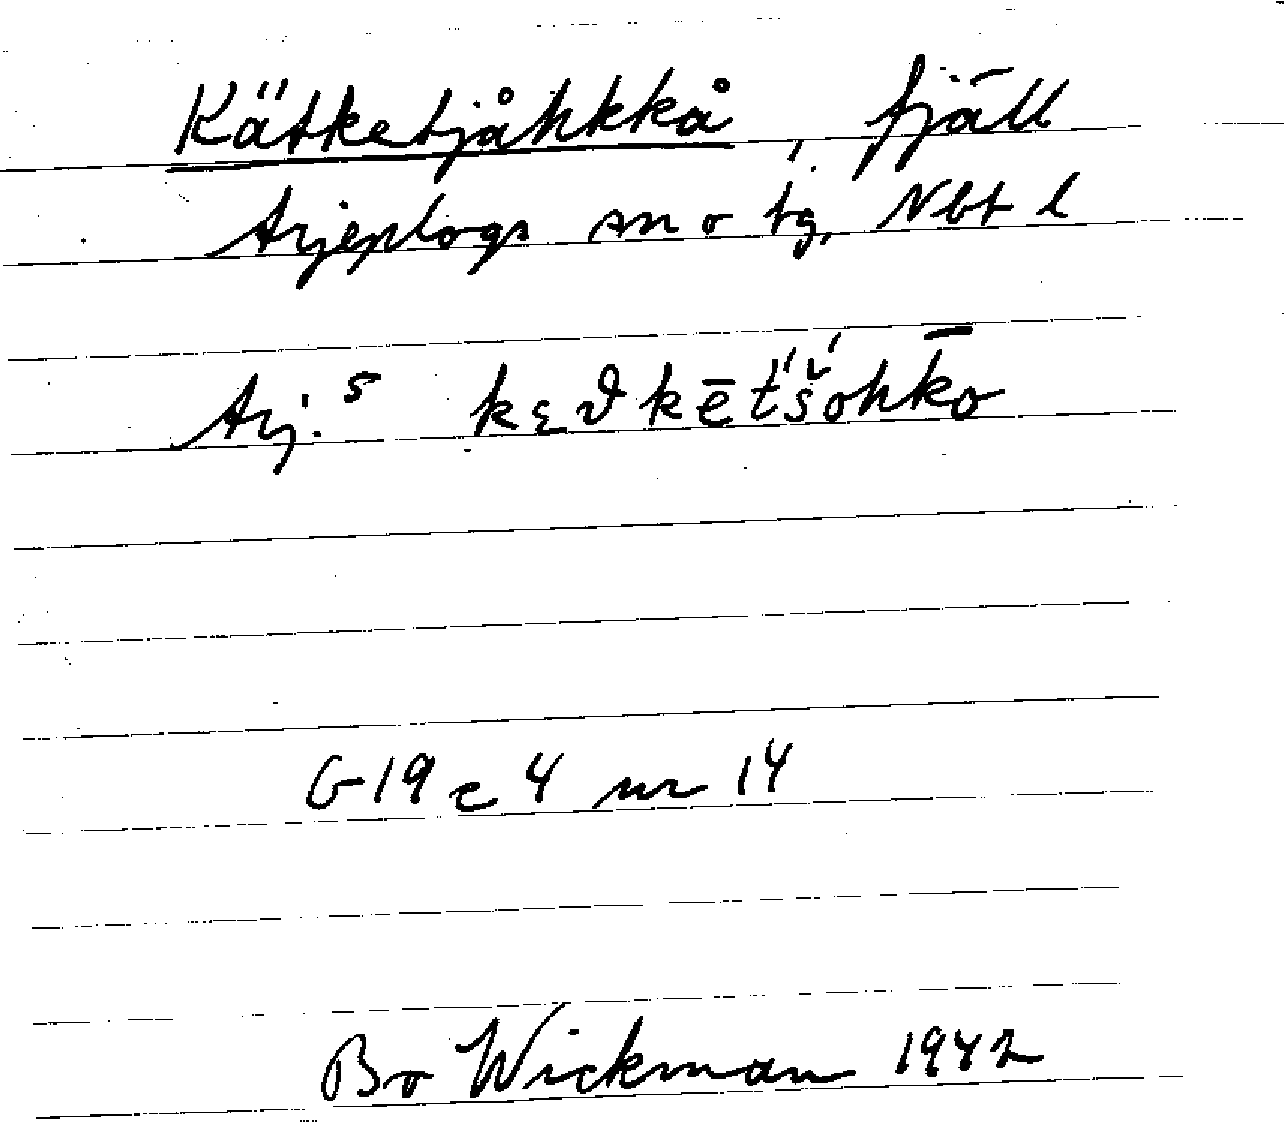 Kätketjåhkkå, fjäll
Arjeplogs sn o tg, Nbt l
Arj. s kεϑkēt́'š́ohk̄o
G 19 c 4 nr 14
Bo Wickman 1942